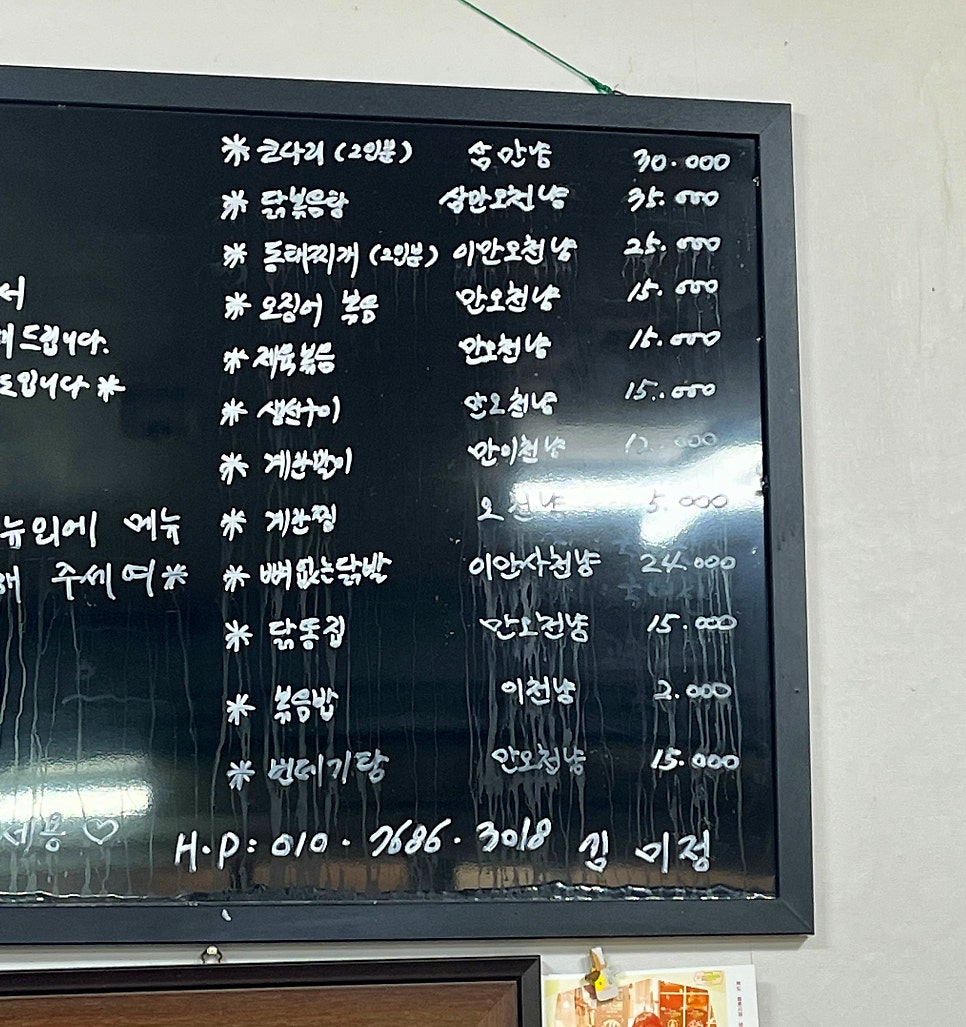 * 코다리 (2인분) 삼만냥 30.000
* 닭볶음탕 삼만오천냥 35.000
* 동태찌개 (2인분) 이만오천냥 25.000
* 오징어 볶음 만오천냥 15.000
* 제육볶음 만오천냥 15.000
* 생선구이 만오천냥 15.000
* 계란말이 만이천냥 12.000
* 계란찜 오천냥 5.000
* 뼈없는닭발 이만사천냥 24.000
* 닭똥집 만오천냥 15.000
* 볶음밥 이천냥 2.000
* 번데기탕 만오천냥 15.000
서
드립니다.
도입니다 *
뉴외에 메뉴
해 주세여*
세용 ♡
H.P: 010.7686.3018 김 미정